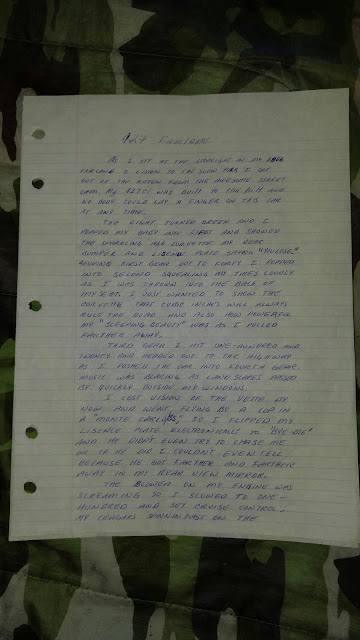 427 FAIRLANE
AS I SIT AT THE STOPLIGHT IN MY 1966
FAIRLANE I LISTEN TO THE SLOW
OUT OF THE MOTOR FROM THE AWESOME STREET
CAM. MY WAS BUILT TO THE HILT AND
NO BODY COULD LAY A FINGER ON THIS CAR
AT ANY TIME.
THE LIGHT TURNED GREEN AND I
POPPED MY BABY INTO FIRST AND SHOWED
THE SNARLING CORVETTE MY REAR
BUMPER AND LISENCE PLATE SAYING
FIRST GEAR OUT TO FORTY I POPPED
INTO SECOND SQUEALING MY TIRES LOUDLY
AS I WAS THROWN INTO THE BACK OF
MY SEAT. I JUST WANTED TO SHOW THE
CORVETTE THAT CUBIC INCHES WILL ALWAYS
RULE THE ROAD AND ALSO HOW POWERFUL
MY "SLEEPING BEAUTY" WAS AS I PULLED
FARTHER AWAY.
THIRD GEAR I HIT ONE-HUNDRED AND
TWENTY AND HEADED OUT TO THE HIGHWAY
AS I PUSHED THE CAR INTO FOURTH GEAR.
MUSIC WAS BLARING AS LANDSCAPES PASSED
BY QUICKLY OUTSIDE MY WINDOWS.
I LOST VISION OF THE VETTE BY
NOW AND WENT FLYING BY A COP IN
A "MONTE CARLO SS", SO I FLIPPED MY
LISENCE PLATE ELECTRONICALLY TO "BYE-BYE"
AND HE DIDN'T EVEN TRY TO CHASE ME
OR IF HE DID I COULDN'T EVEN TELL
BECAUSE HE GOT FARTHER AND FARTHER
AWAY IN MY REAR VIEW MIRROR.
THE BLOWER ON MY ENGINE WAS
SCREAMING SO I SLOWED TO ONE-
HUNDRED AND SET CRUISE CONTROL.
MY CRAGARS SPINNIN FAST ON THE